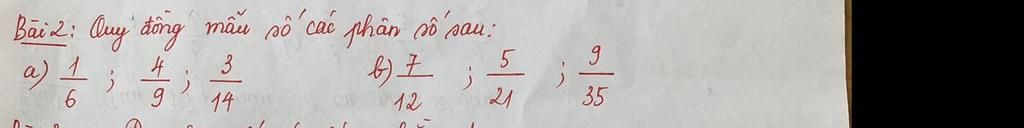 Bài 2: Quy đồng mẫu số các phân số sau:
a) 1/6 ; 4/9 ; 3/14 b) 7/12 ; 5/21 ; 9/35